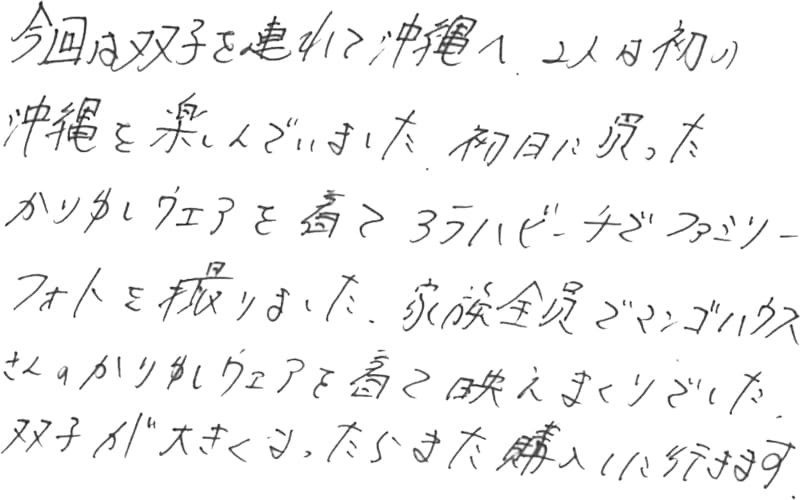 今回は双子を連れて沖縄へ. 2人は初の
沖縄を楽しんでいました. 初日に買った
かりゆしウェアを着て アラハビーチでファミリー
フォトを撮りました. 家族全員でマンゴハウス
さんのかりゆしウェアを着て映えまくりでした.
双子が大きくなったらまた購入しに行きます.